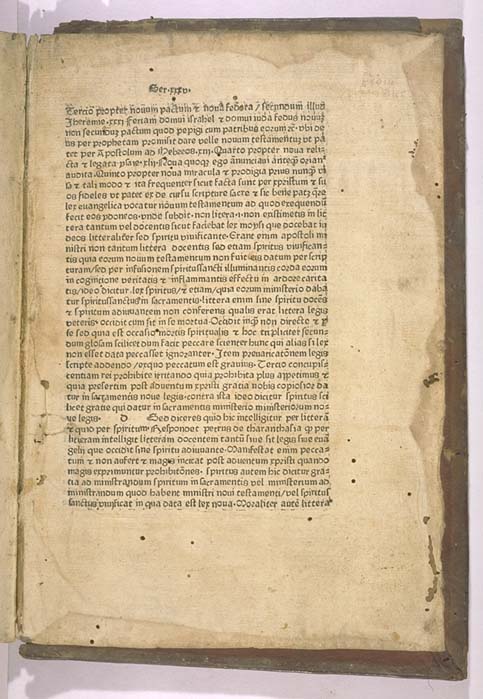 Ser. xxxv.
Tercio propter nouum pactum et noua federa / secundum illud
Iheremie .xxxi Feriam domui israhel et domui iuda fedus nouum
non secundum pactum quod pepigi cum patribus eorum etc Vbi de
us per prophetam promisit dare velle nouum testamentum vt pa
tet per Apostolum ad Hebreos .xij. Quarto propter noua reli
cta et legata ysaie .xlij. Noua quoque ego annuncians antequam oriantur
audita. Quinto propter noua miracula et prodigia prius nunquam vi
sa et tali modo et ita frequenter sicut facta sunt per xpristum et su
os fideles vt patet ex de cursu scripture sacre et sic bene patet quod
lex euangelica vocatur nouum testamentum ad quod exequendum
fecit eos ydoneos. vnde subdit. non litera. i. non existimetis in lit
tera tantum vel docentis sicut faciebat lex moysi que docebat iu
deos litteraliter sed spiritu viuificante. Erant enim apostoli mi
nistri non tantum littera docentis sed etiam spiritus viuifican-
tis quia eorum nouum testamentum non fuit eis datum per scrip
turam / sed per infusionem spiritussancti illuminantis corda eorum
in cognicione veritatis et inflammantis effectum in ardore carita
tis / ideo dicitur lex spiritus / et etiam / quia eorum ministerio daba
tur spiritussanctus in sacramentis. littera enim sine spiritu docente
et spiritum adiuuantem non conferens qualis erat littera legis
veteris. occidit cum sit in se mortua. Occidit inquam non directe et per
se sed quia est occasio mortis spiritualis et hoc tripliciter secun
dum glosam scilicet dum facit peccare scienter hunc qui alias si lex
non esset data peccasset ignoranter. Item preuaricationem legis
scripte addendo / ex quo peccatum est grauius. Tercio concupis-
centiam rei prohibite irritando quia prohibita plus appetimus et
quia presertim post aduentum xpristi gratia nobis copiosior da
tur in sacramentis noue legis. contra ista ideo dicitur spiritus sci
licet gratie qui datur in sacramentis ministerio ministrorum no
ue legis. D Sed diceres quid hic intelligitur per litteram
et quid per spiritum Respondet petrus de tharanthasia quod per
litteram intelligit litteram docentem tantum siue sit legis siue euan
gelij que occidit sine spiritu adiuuante. Manifestat enim pecca-
tum et non aufert et magis incitat post aduentum xpristi quando
magis exprimuntur prohibitiones. spiritus autem hic dicitur gra-
tia ad ministrandum spiritum in sacramentis vel ministerium ad
ministrandum quod habent ministri noui testamenti / vel spiritus
sanctus viuificat in qua data est lex noua. Moraliter autem littera